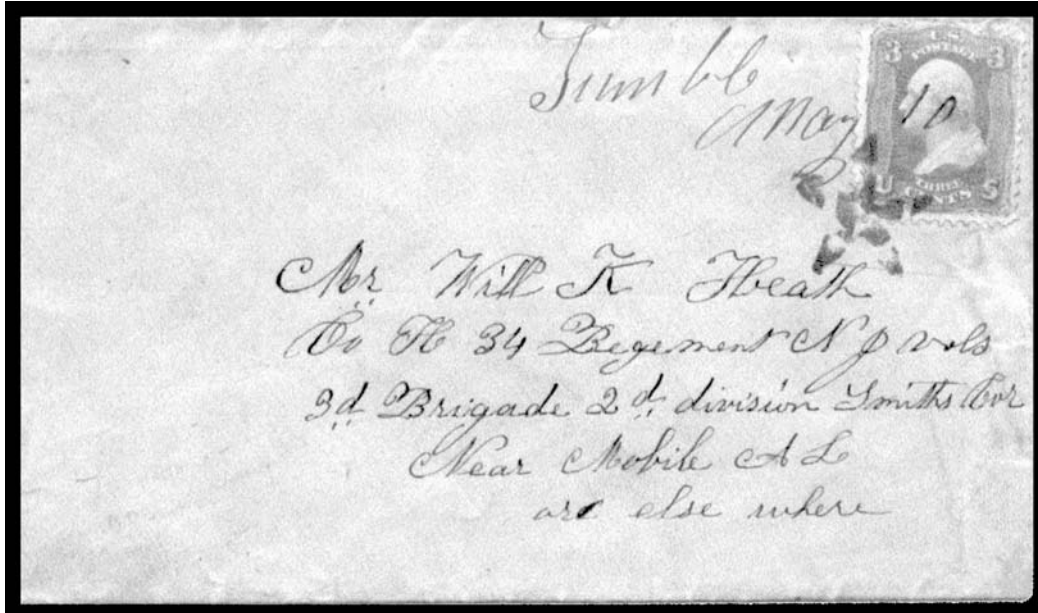 U.S.
POSTAGE
3 3
May 10
U THREE S
CENTS
Mr Will K Heath
Co H 34 Regement N J vols
3d Brigade 2d division Smiths Cor
Near Mobile AL
ore else where